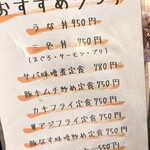 おすすめランチ
うな丼 950円
二色丼 750円
(まぐろ・サーモン・ブリ)
サバ味噌煮定食 780円
豚キムチ炒め定食 750円
カキフライ定食 750円
アジフライ定食 750円
豚なす味噌炒め定食 750円
550